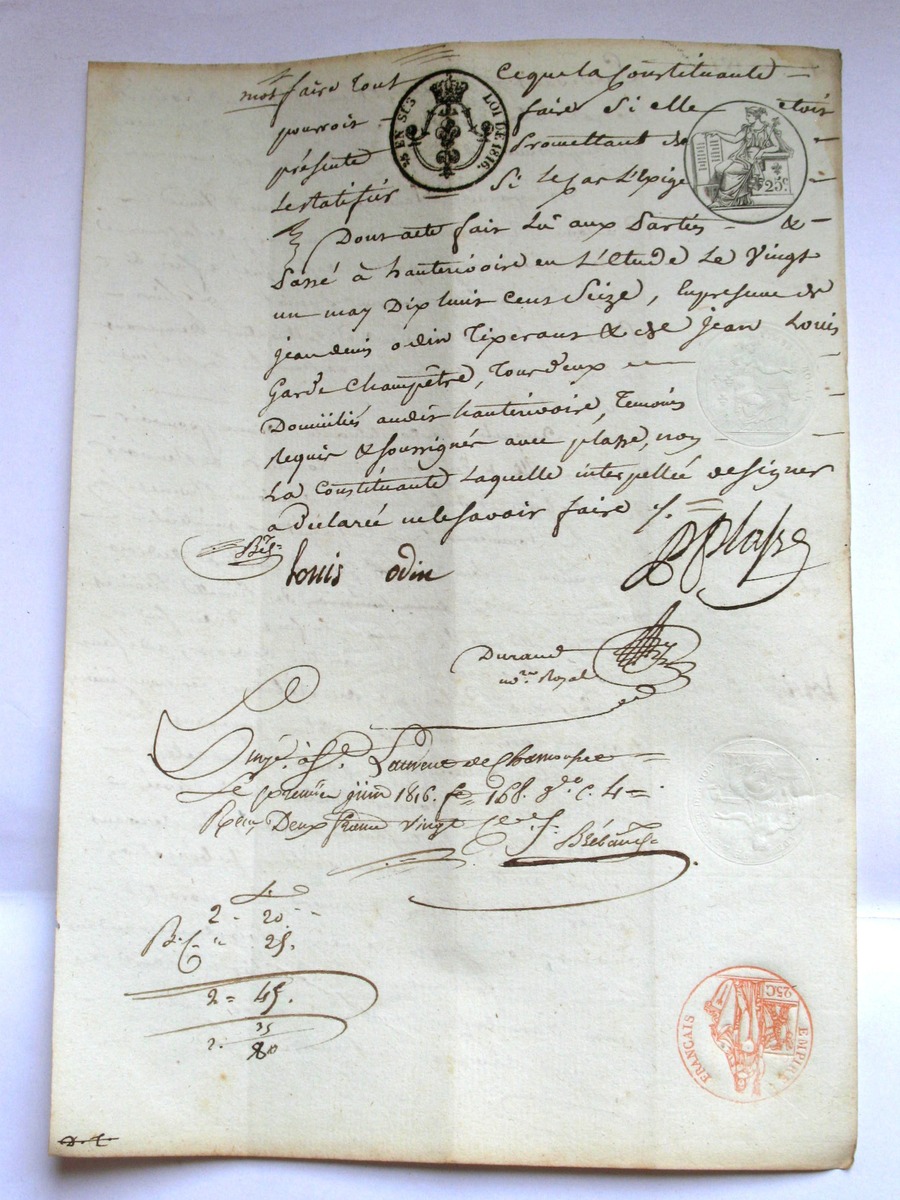 mot faire tout ce que la Constituante
pourroit faire Si elle etoit
présente Promettant de
Le Ratifier Si le cas L'Exige
Dont acte fait Lu aux Parties &
Passé à hauterivoire en L'étude Le Vingt
un may Dix huit Cent Seize, En presence de
jean denis odin Tixerant & de Jean Louis
Garde Champêtre, Tous deux
Domiciliés audit hauterivoire, Temoins
Requis & soussignés avec plasse, non
La Constituante Laquelle interpellée de Signer
a Déclarée ne le Savoir faire
louis odin
Plasse
Durand
no.re Royal
Laurent de Chamousset
Le premier juin 1816. f.° 168. v.° c. 4
Reçu Deux francs vingt
2 - 20
25.
2 = 45.
35
2. 80
EN SUS LOI DE 1816.
25.c
EMPIRE FRANÇAIS
25C